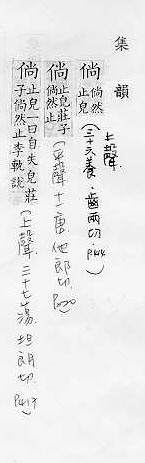 集韻
上聲
倘 倘然
止皃
(三十六養·齒兩切·
倘 止皃莊子
倘然止
(平聲 十一唐·他郎切·
倘 止皃一曰自失皃莊
子倘然止李軌說
(上聲·三十七蕩·坦朗切· P417)